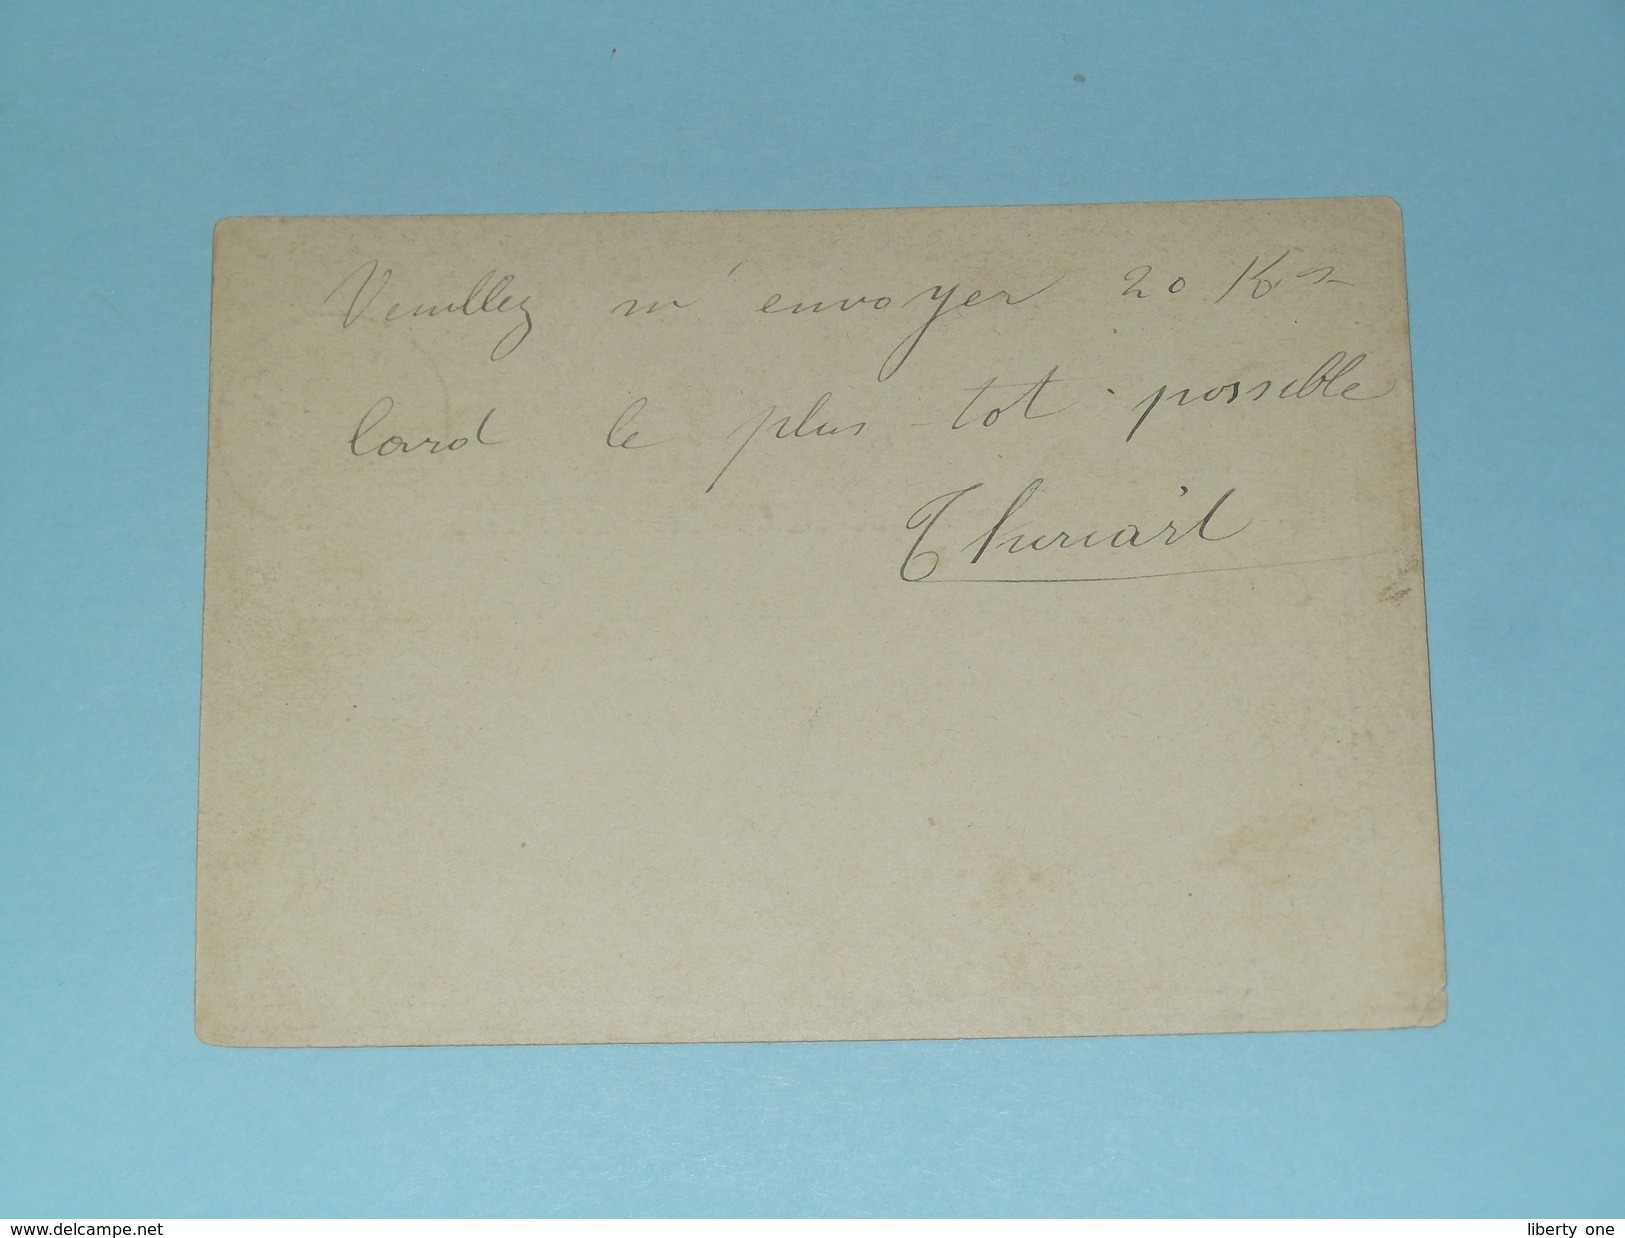 Veuillez m'envoyer 20 Kos
lard le plus-tot possible
Thuriart
www.delcampe.net
liberty one